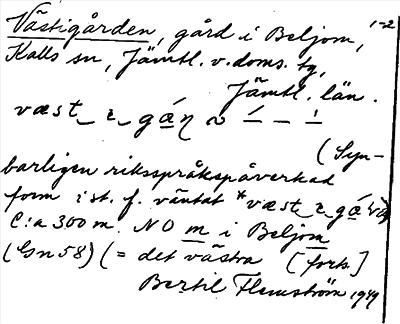 Västigården, gård i Beljom, 1-2
Kalls sn, Jämtl. v. doms. tg,
Jämtl. län.
(Syn-
barligen riksspråkspåverkad
form i st. f. väntat *væst
C:a 300 m. NO m i Beljom
(Gn 58) (= det västra [forts.]
Bertil Flemström 1949